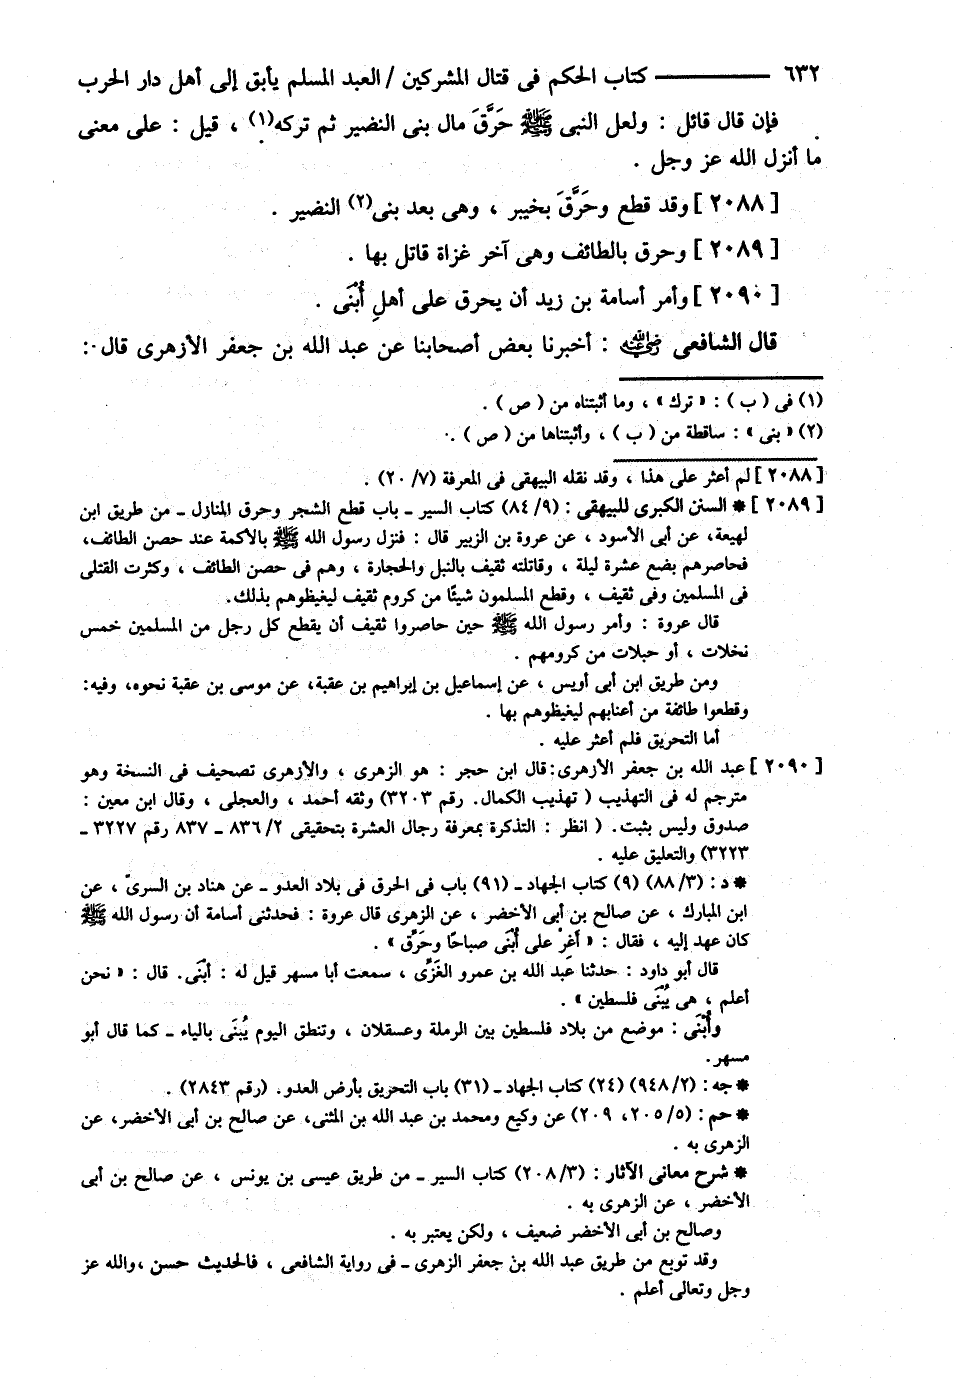 ٦٣٢ ــــــــــ كتاب الحكم فى قتال المشركين / العبد المسلم يأبق إلى أهل دار الحرب
فإن قال قائل : ولعل النبى ﷺ حَرَّقَ مال بنى النضير ثم تركه(١) ، قيل : على معنى
ما أنزل الله عز وجل .
[ ٢٠٨٨ ] وقد قطع وحَرَّقَ بخيبر ، وهى بعد بنى(٢) النضير .
[ ٢٠٨٩ ] وحرق بالطائف وهى آخر غزاة قاتل بها .
[ ٢٠٩٠ ] وأمر أسامة بن زيد أن يحرق على أهلِ أُبْنَى .
قال الشافعى رضي الله عنه : أخبرنا بعض أصحابنا عن عبد الله بن جعفر الأزهرى قال :
(١) فى ( ب ) : « ترك » ، وما أثبتناه من ( ص ) .
(٢) « بنى » : ساقطة من ( ب ) ، وأثبتناها من ( ص ) .
[ ٢٠٨٨ ] لم أعثر على هذا ، وقد نقله البيهقى فى المعرفة (٧/ ٢٠) .
[ ٢٠٨٩ ] * السنن الكبرى للبيهقى : (٩/ ٨٤) كتاب السير ـ باب قطع الشجر وحرق المنازل ـ من طريق ابن
لهيعة، عن أبى الأسود ، عن عروة بن الزبير قال : فنزل رسول الله ﷺ بالأكمة عند حصن الطائف،
فحاصرهم بضع عشرة ليلة ، وقاتلته ثقيف بالنبل والحجارة ، وهم فى حصن الطائف ، وكثرت القتلى
فى المسلمين وفى ثقيف ، وقطع المسلمون شيئًا من كروم ثقيف ليغيظوهم بذلك.
قال عروة : وأمر رسول الله ﷺ حين حاصروا ثقيف أن يقطع كل رجل من المسلمين خمس
نخلات ، أو حبلات من كرومهم .
ومن طريق ابن أبى أويس ، عن إسماعيل بن إبراهيم بن عقبة، عن موسى بن عقبة نحوه، وفيه:
وقطعوا طائفة من أعنابهم ليغيظوهم بها .
أما التحريق فلم أعثر عليه .
[ ٢٠٩٠ ] عبد الله بن جعفر الأزهرى: قال ابن حجر : هو الزهرى ، والأزهرى تصحيف فى النسخة وهو
مترجم له فى التهذيب ( تهذيب الكمال. رقم ٣٢٠٣) وثقه أحمد ، والعجلى ، وقال ابن معين :
صدوق وليس بثبت. ( انظر : التذكرة بمعرفة رجال العشرة بتحقيقى ٢/ ٨٣٦ ـ ٨٣٧ رقم ٣٢٢٧ ـ
٣٢٢٣) والتعليق عليه .
* د : (٣/ ٨٨) (٩) كتاب الجهاد ـ (٩١) باب فى الحرق فى بلاد العدو ـ عن هناد بن السرىّ ، عن
ابن المبارك ، عن صالح بن أبى الأخضر ، عن الزهرى قال عروة : فحدثنى أسامة أن رسول الله ﷺ
كان عهد إليه ، فقال : « أَغِرْ على أُبْنَى صباحًا وحَرِّق » .
قال أبو داود : حدثنا عبد الله بن عمرو الغَزِّى ، سمعت أبا مسهر قيل له : أُبْنَى. قال : « نحن
أعلم ، هى يُبْنَى فلسطين » .
وأُبْنَى : موضع من بلاد فلسطين بين الرملة وعسقلان ، وتنطق اليوم يُبنَى بالياء ـ كما قال أبو
مسهر.
* جه : (٢/ ٩٤٨) (٢٤) كتاب الجهاد ـ (٣١) باب التحريق بأرض العدو. (رقم ٢٨٤٣) .
* حم : (٥/ ٢٠٥، ٢٠٩) عن وكيع ومحمد بن عبد الله بن المثنى، عن صالح بن أبى الأخضر، عن
الزهرى به .
* شرح معانى الآثار : (٣/ ٢٠٨) كتاب السير ـ من طريق عيسى بن يونس ، عن صالح بن أبى
الأخضر ، عن الزهرى به .
وصالح بن أبى الأخضر ضعيف ، ولكن يعتبر به .
وقد توبع من طريق عبد الله بن جعفر الزهرى ـ فى رواية الشافعى ، فالحديث حسن ،والله عز
وجل وتعالى أعلم .